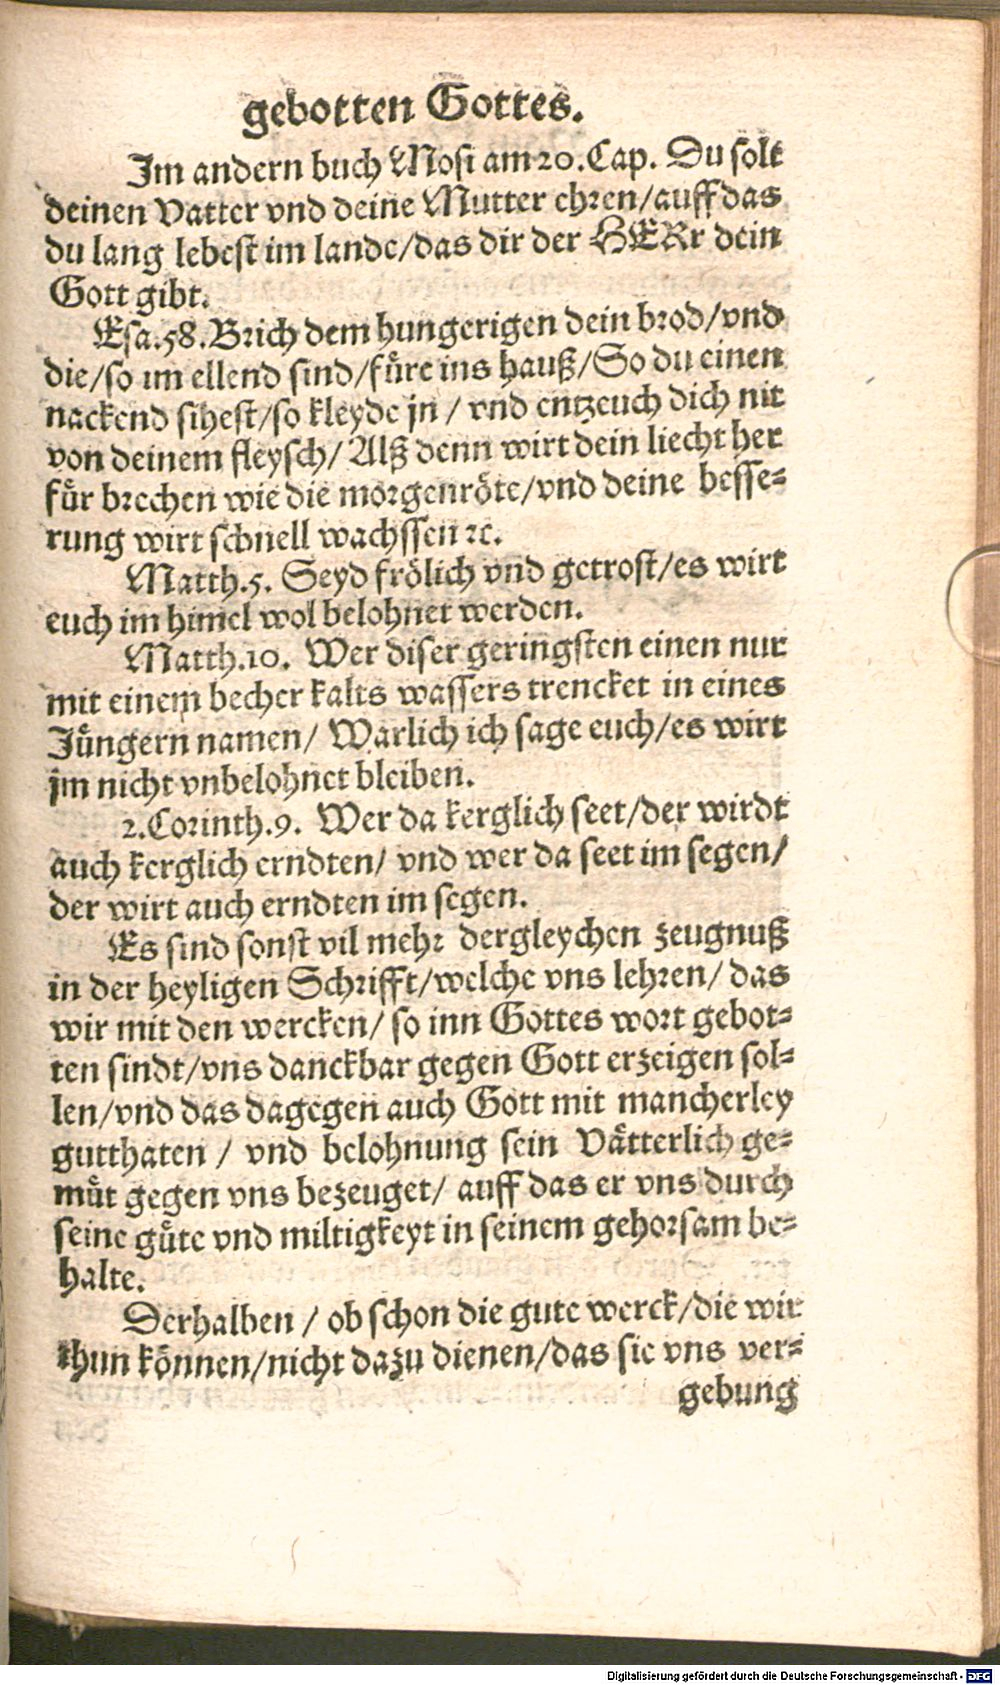 gebotten Gottes.
Im andern buch Mosi am 20. Cap. Du solt
deinen Vatter vnd deine Mutter ehren/auff das
du lang lebest im lande/das dir der HERr dein
Gott gibt.
Esa.58. Brich dem hungerigen dein brod/vnd
die/so im ellend sind/füre ins hauß/So du einen
nackend sihest/so kleyde jn/ vnd entzeuch dich nit
von deinem fleysch/ Alß denn wirt dein liecht her
für brechen wie die morgenröte/vnd deine besse-
rung wirt schnell wachssen ꝛc.
Matth.5. Seyd frölich vnd getrost/es wirt
euch im himel wol belohnet werden.
Matth.10. Wer diser geringsten einen nur
mit einem becher kalts wassers trencket in eines
Jüngern namen/ Warlich ich sage euch/es wirt
jm nicht vnbelohnet bleiben.
2.Corinth.9. Wer da kerglich seet/der wirdt
auch kerglich erndten/ vnd wer da seet im segen/
der wirt auch erndten im segen.
Es sind sonst vil mehr dergleychen zeugnuß
in der heyligen Schrifft/welche vns lehren/ das
wir mit den wercken/ so inn Gottes wort gebot-
ten sindt/vns danckbar gegen Gott erzeigen sol-
len/vnd das dagegen auch Gott mit mancherley
gutthaten / vnd belohnung sein Vätterlich ge-
müt gegen vns bezeuget/ auff das er vns durch
seine güte vnd miltigkeyt in seinem gehorsam be-
halte.
Derhalben / ob schon die gute werck/die wir
thun können/nicht dazu dienen/das sie vns ver-
gebung
Digitalisierung gefördert durch die Deutsche Forschungsgemeinschaft - DFG